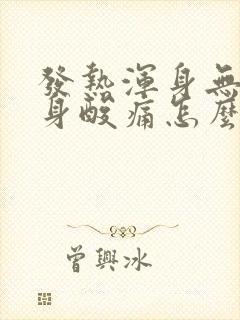 發熱渾身無
身酸痛怎麼
曾興冰